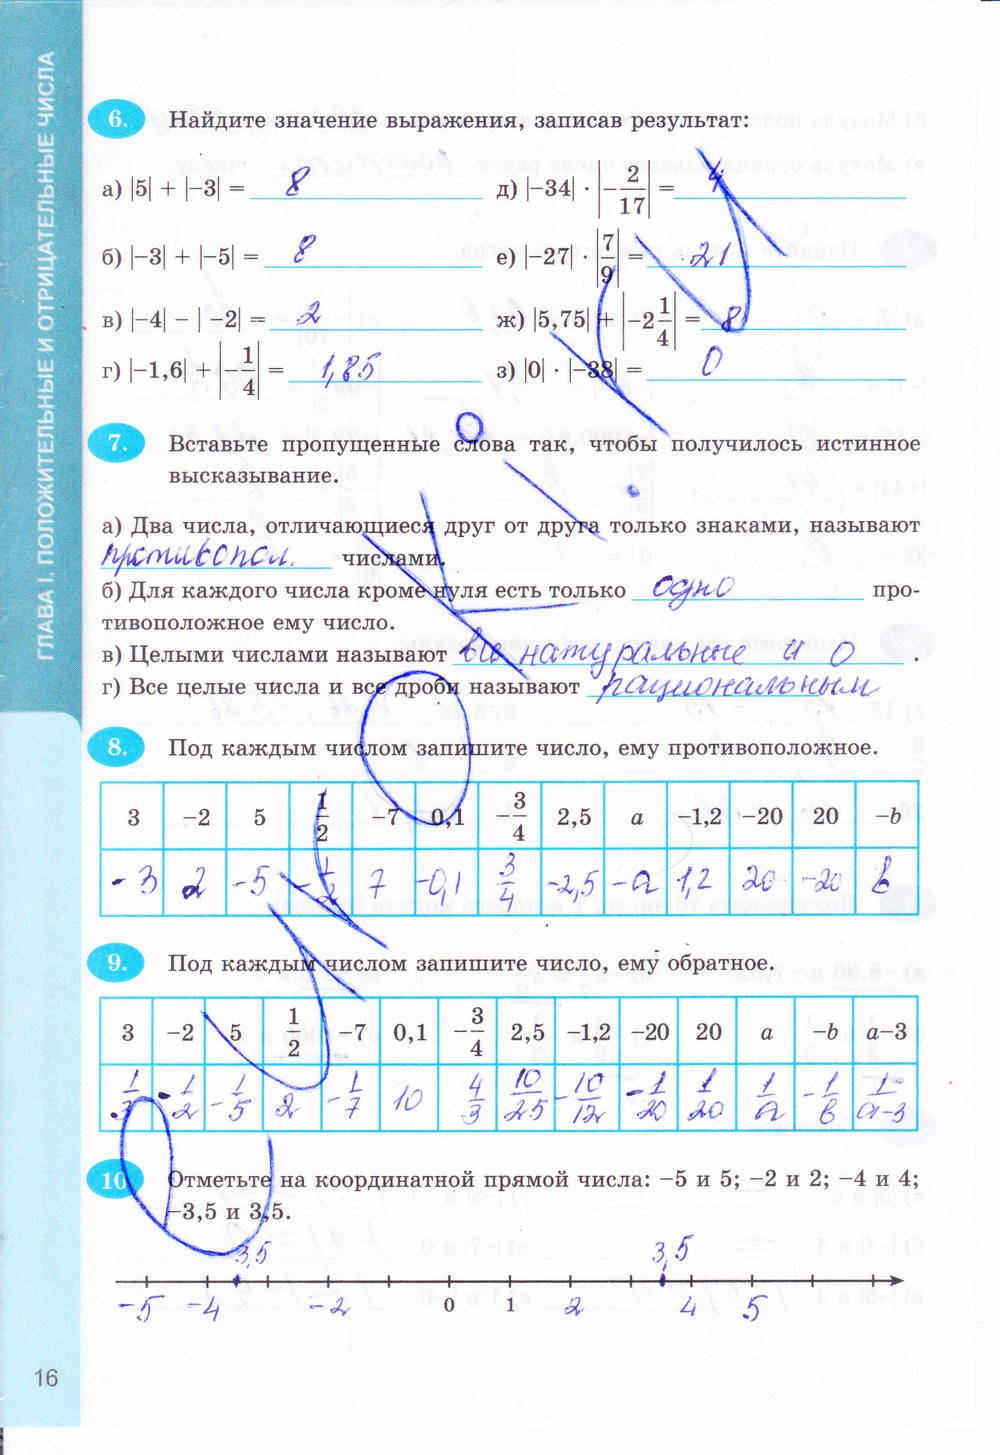 ГЛАВА I. ПОЛОЖИТЕЛЬНЫЕ И ОТРИЦАТЕЛЬНЫЕ ЧИСЛА
6. Найдите значение выражения, записав результат:
а) |5| + |−3| = 8
д) |−34| · |−2/17| = 4
б) |−3| + |−5| = 8
е) |−27| · |7/9| = 21
в) |−4| − | −2| = 2
ж) |5,75| + |−2 1/4| = 8
г) |−1,6| + |−1/4| = 1,85
з) |0| · |−38| = 0
7. Вставьте пропущенные слова так, чтобы получилось истинное
высказывание.
а) Два числа, отличающиеся друг от друга только знаками, называют
противопол. числами.
б) Для каждого числа кроме нуля есть только одно про-
тивоположное ему число.
в) Целыми числами называют все натуральные и 0 .
г) Все целые числа и все дроби называют рациональным
8. Под каждым числом запишите число, ему противоположное.
3 −2 5 1/2 −7 0,1 −3/4 2,5 a −1,2 −20 20 −b
-3 2 -5 -1/2 7 -0,1 3/4 -2,5 -a 1,2 20 -20 b
9. Под каждым числом запишите число, ему обратное.
3 −2 5 1/2 −7 0,1 −3/4 2,5 −1,2 −20 20 a −b a−3
1/3 -1/2 -1/5 2 -1/7 10 4/3 10/25 -10/12 -1/20 1/20 1/a -1/b 1/a-3
10. Отметьте на координатной прямой числа: −5 и 5; −2 и 2; −4 и 4;
−3,5 и 3,5.
3,5 3,5
-5 -4 -2 0 1 2 4 5
16